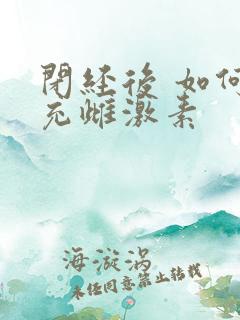 閉經後 如何
充雌激素
海漩渦
未经同意禁止转载